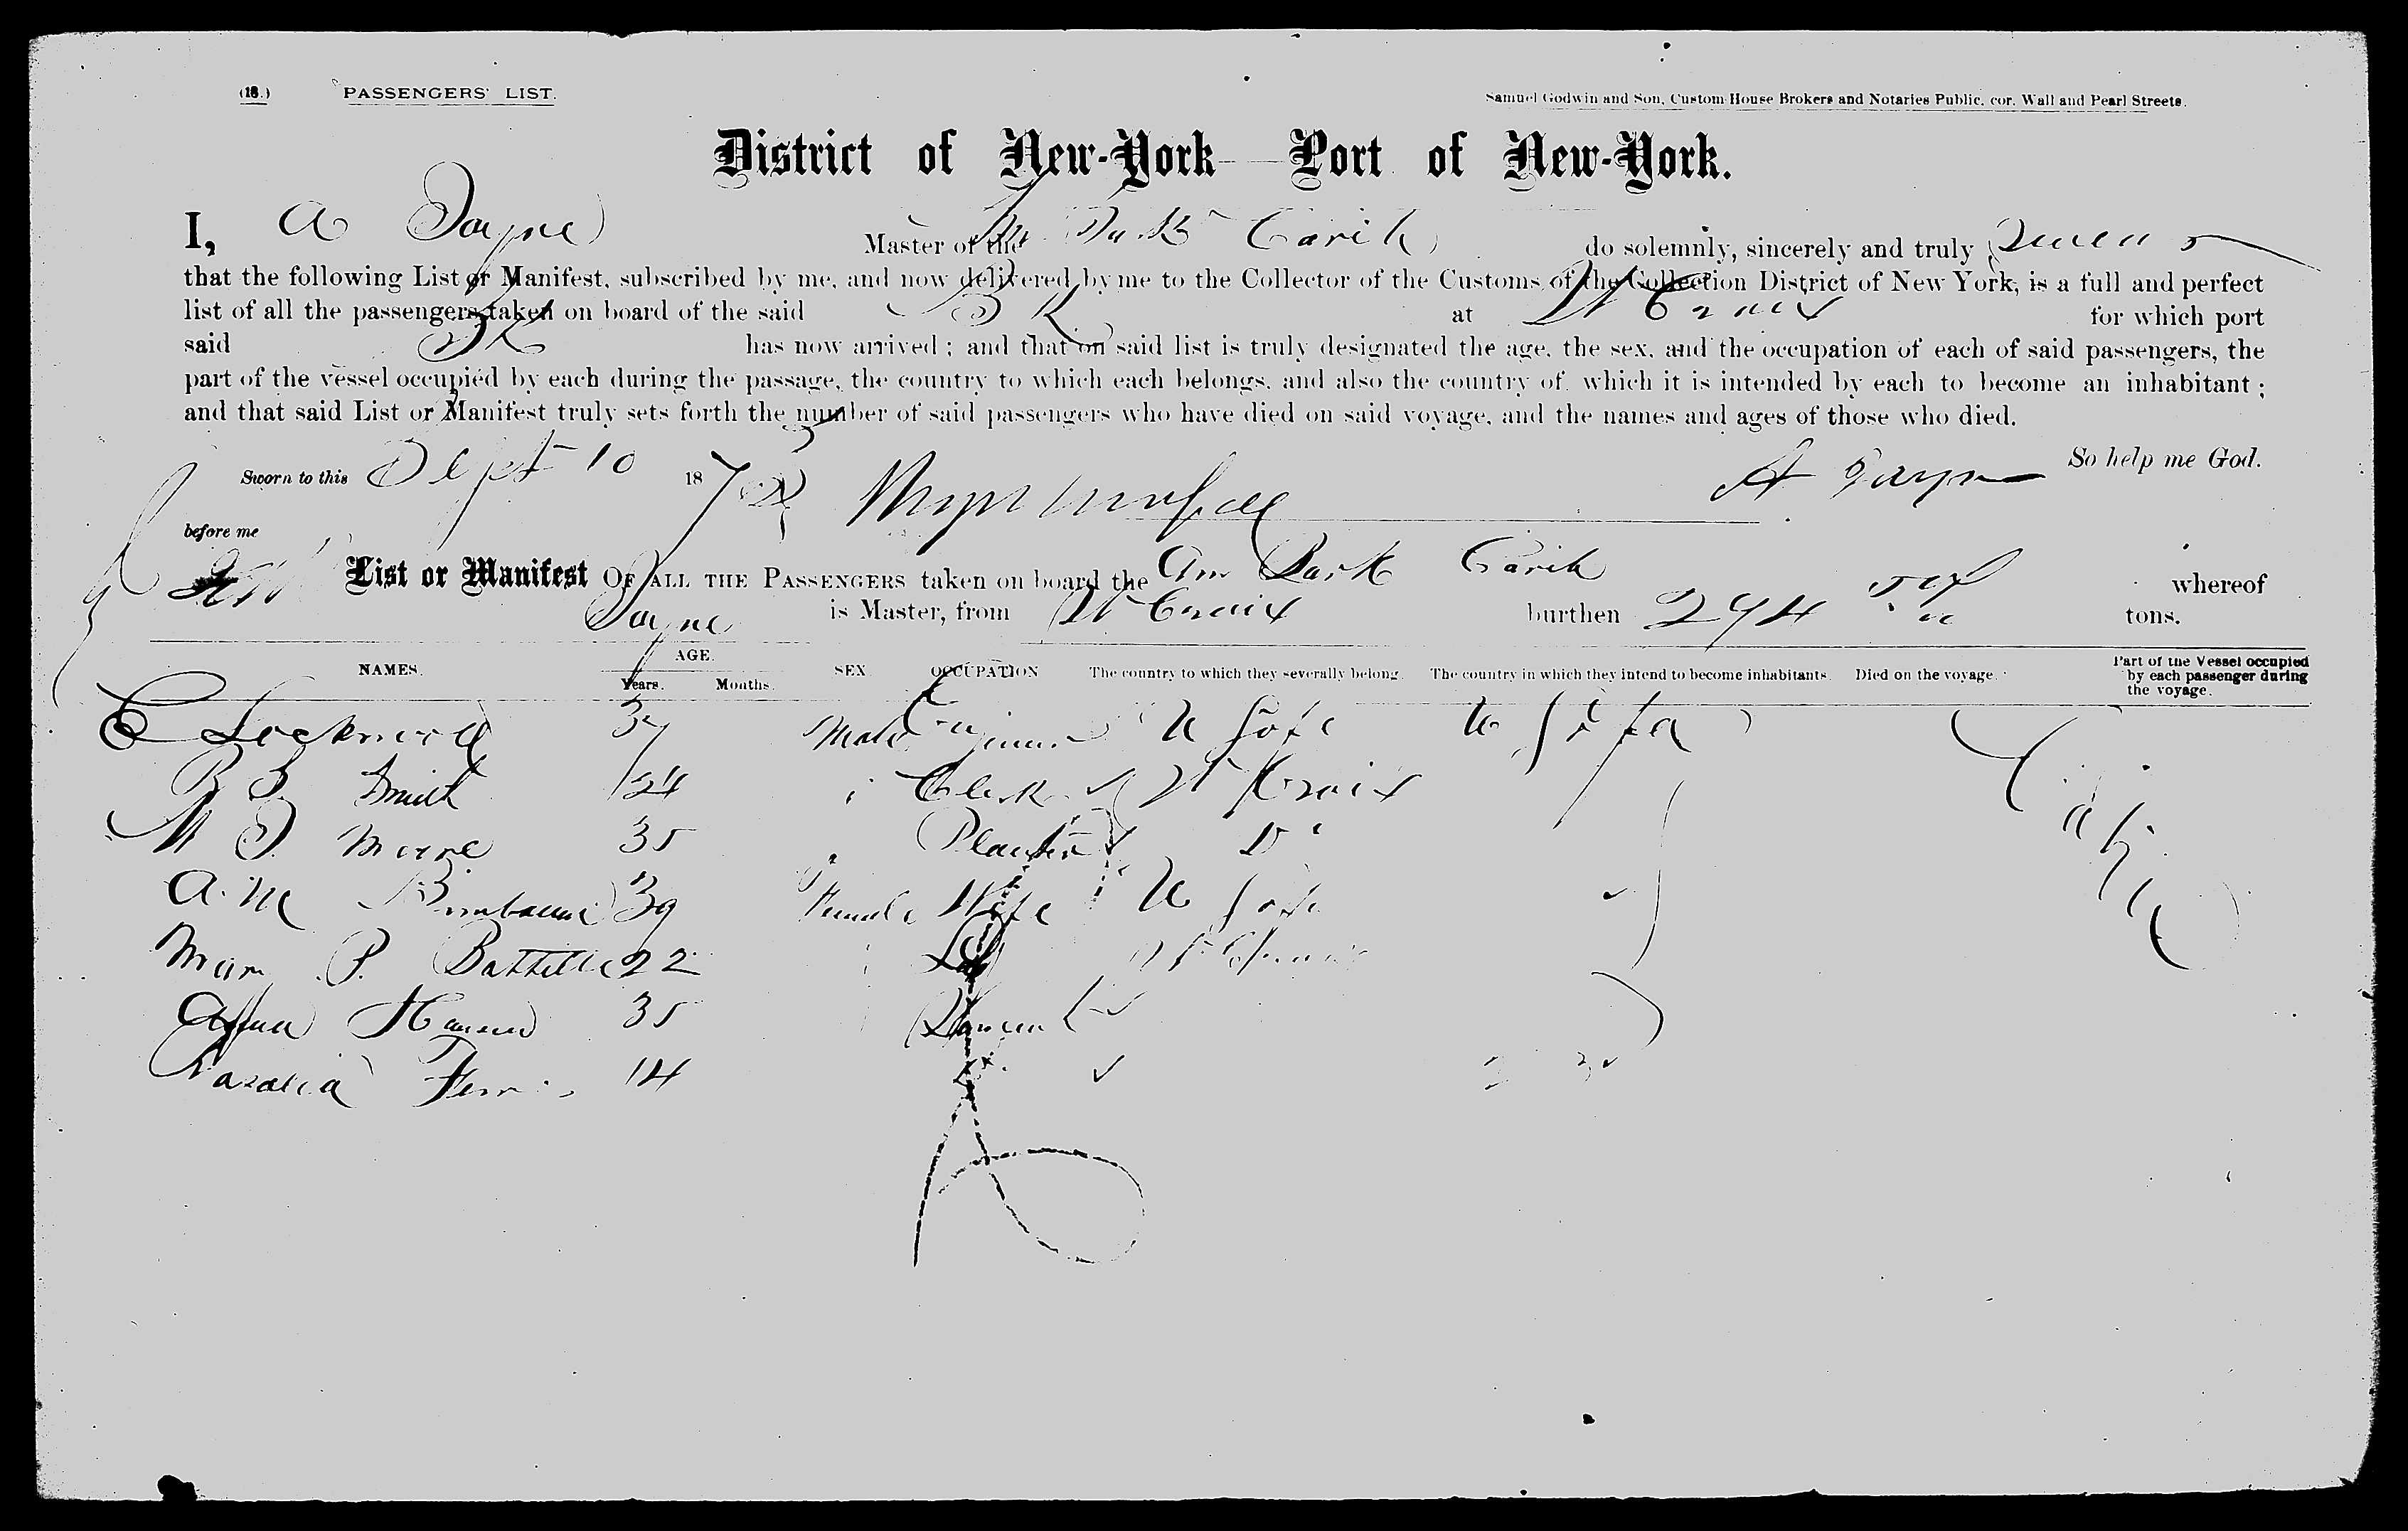 (18.) PASSENGERS' LIST.
Samuel Godwin and Son, Custom-House Brokers and Notaries Public, cor. Wall and Pearl Streets.
District of New-York Port of New-York.
I, A Jayne Master of the Am Bark Carib do solemnly, sincerely and truly swear
that the following List or Manifest, subscribed by me, and now delivered by me to the Collector of the Customs of the Collection District of New York, is a full and perfect
list of all the passengers taken on board of the said Bk at St Croix for which port
said Bk has now arrived; and that on said list is truly designated the age, the sex, and the occupation of each of said passengers, the
part of the vessel occupied by each during the passage, the country to which each belongs, and also the country of which it is intended by each to become an inhabitant;
and that said List or Manifest truly sets forth the number of said passengers who have died on said voyage, and the names and ages of those who died.
So help me God.
Sworn to this Sept 10 187 A Jayne
before me
List or Manifest OF ALL THE PASSENGERS taken on board the Am Bark Carib whereof
Jayne is Master, from St Croix burthen 294 tons.
NAMES. AGE. Years. Months. SEX OCCUPATION The country to which they severally belong. The country in which they intend to become inhabitants. Died on the voyage. Part of the Vessel occupied by each passenger during the voyage.
E Lockwood 37 Male U Sofa U S of a Cabin
B S Smith 24 Clerk St Croix
M D Moore 35 Planter Do
A. M 39 Female Wife U Sofa
P. Battelle 22 Lady St Croix
Anna Hansen 35 Servant
Ferris 14